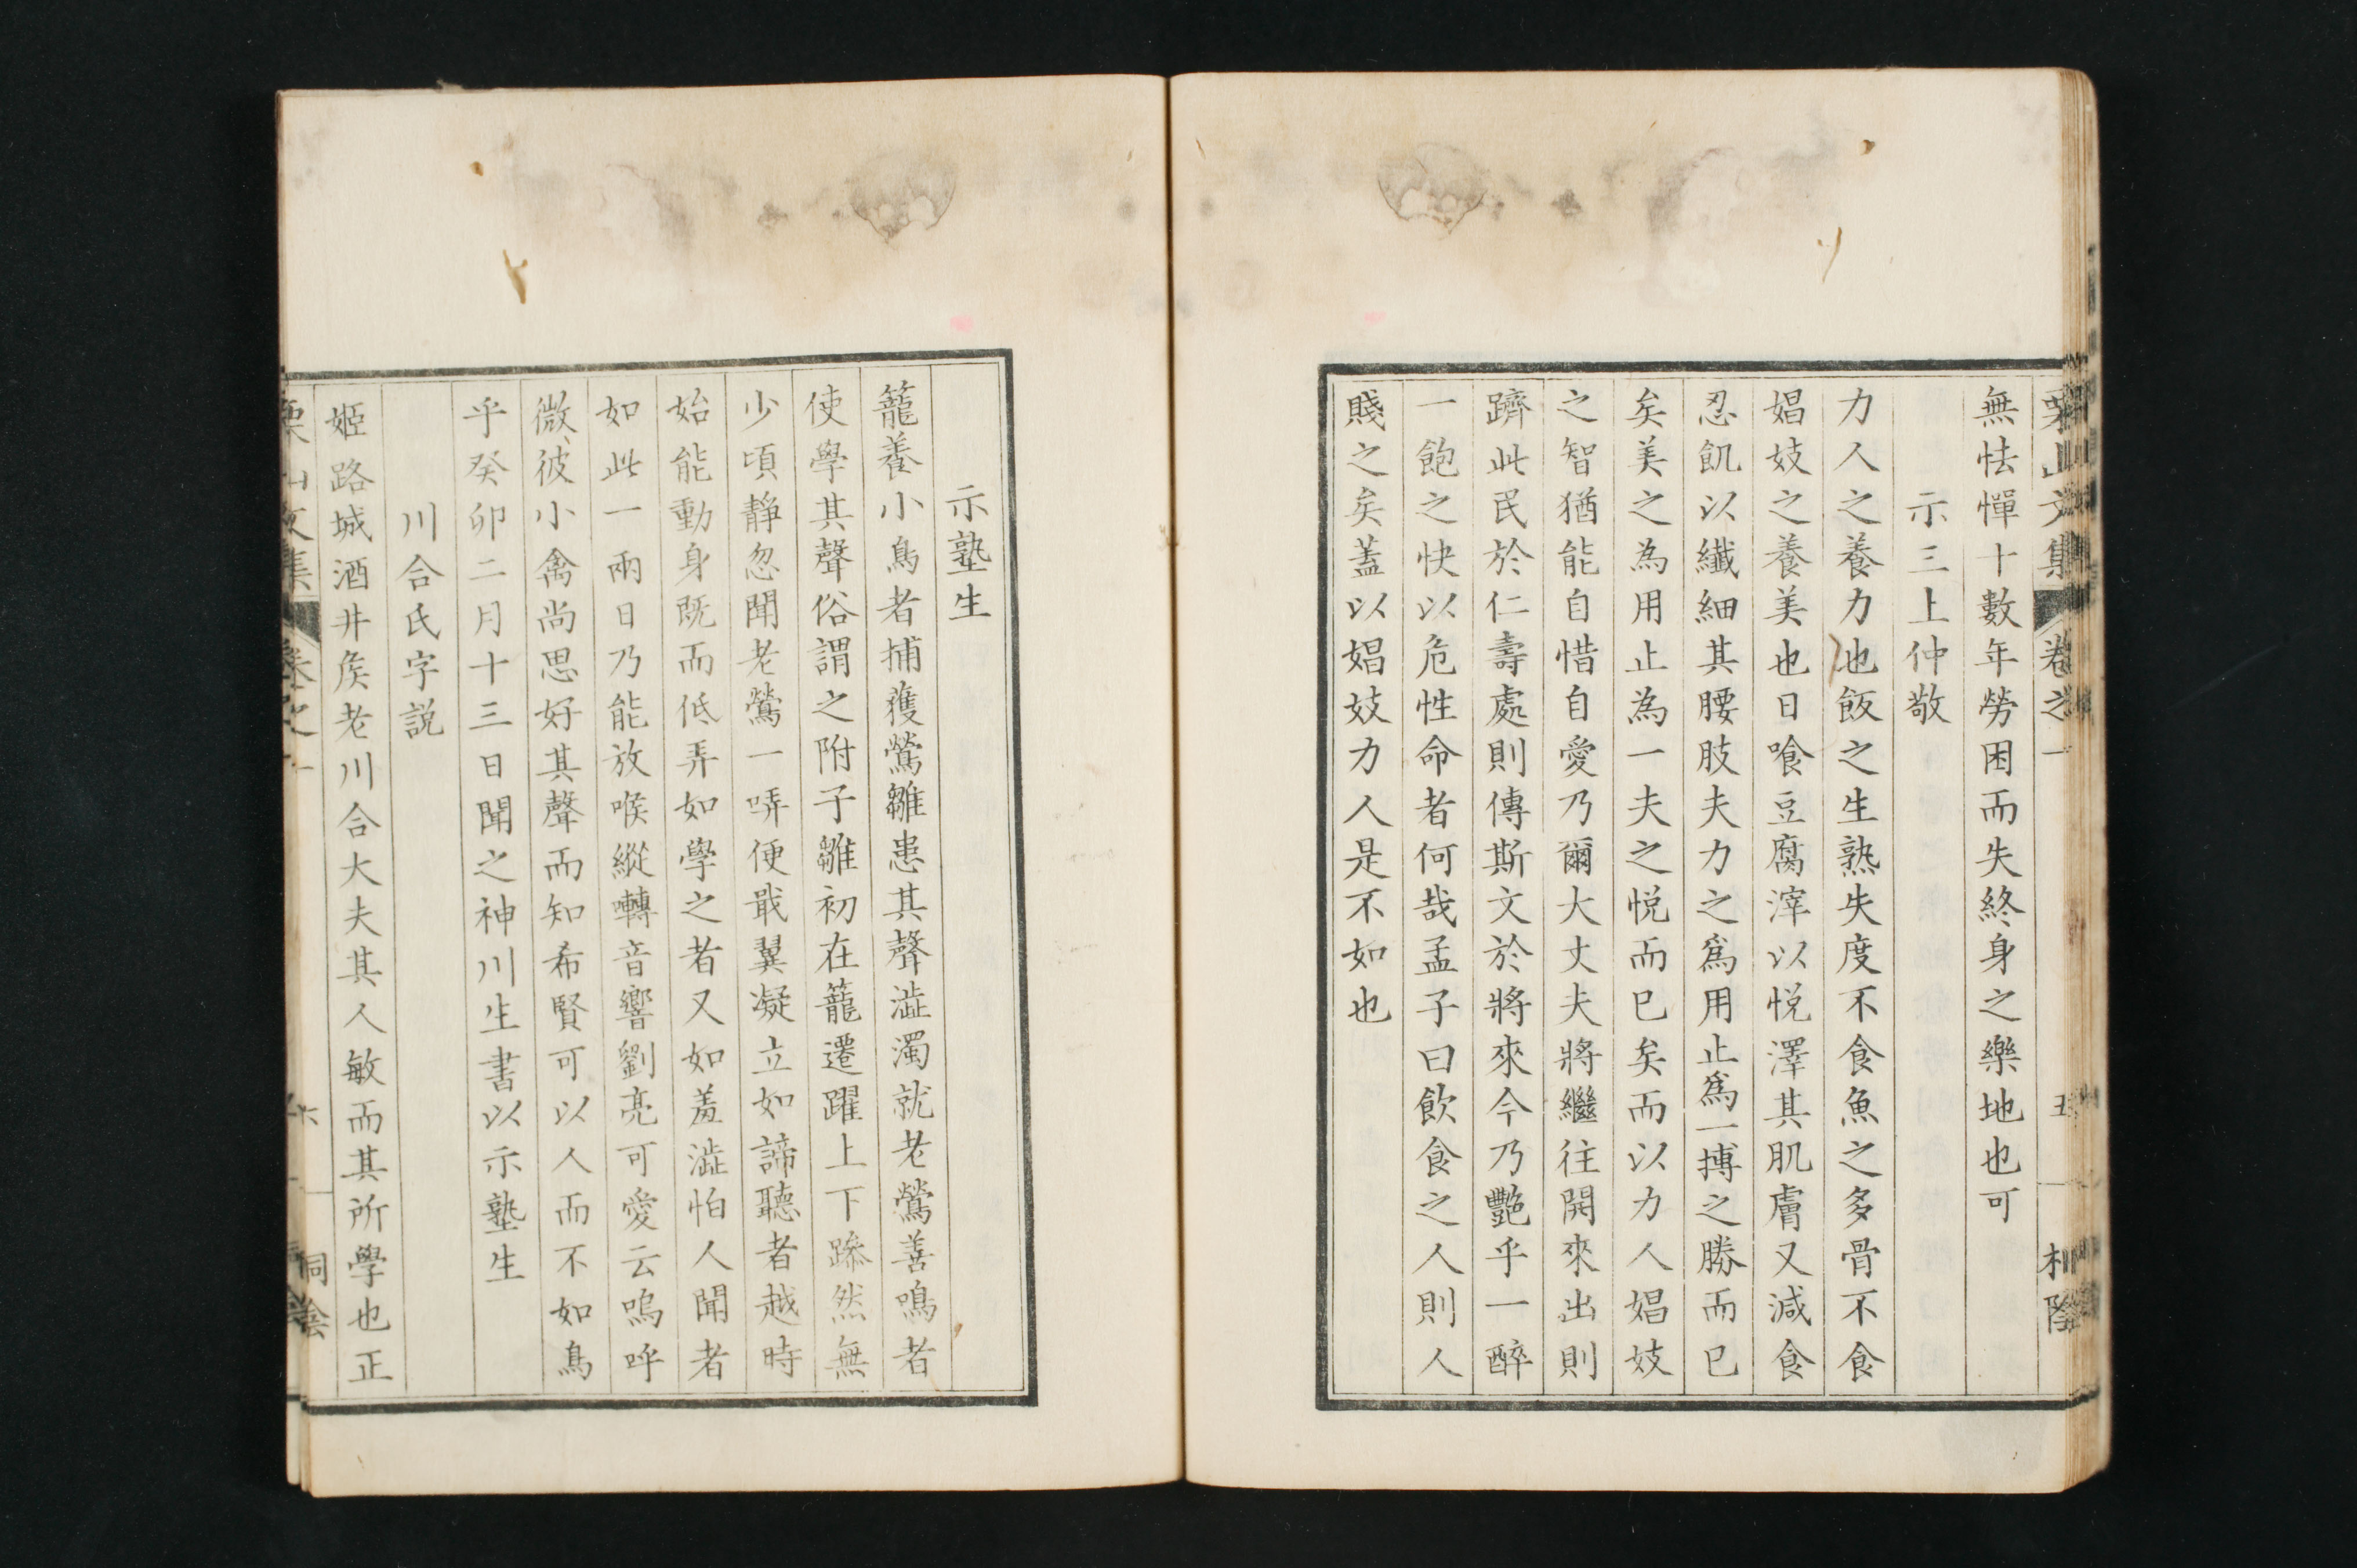 栗山文集 卷之一 五
無怯憚十數年勞困而失終身之樂地也可
示三上仲敬
力人之養力也飯之生熟失度不食魚之多骨不食
娼妓之養美也日喰豆腐滓以悦澤其肌膚又減食
忍飢以纎細其腰肢夫力之爲用止爲一搏之勝而已
矣美之為用止為一夫之悦而已矣而以力人娼妓
之智猶能自惜自愛乃爾大丈夫將繼往開來出則
躋此民於仁壽處則傳斯文於將來今乃艷乎一醉
一飽之快以危性命者何哉孟子曰飲食之人則人
賤之矣蓋以娼妓力人是不如也
示塾生
籠養小鳥者捕獲鶯雛患其聲澁濁就老鶯善鳴者
使學其聲俗謂之附子雛初在籠遷躍上下躁然無
少頃靜忽聞老鶯一哢便戢翼凝立如諦聽者越時
始能動身既而低弄如學之者又如羞澁怕人聞者
如此一兩日乃能放喉縱囀音響劉亮可愛云嗚呼
微彼小禽尚思好其聲而知希賢可以人而不如鳥
乎癸卯二月十三日聞之神川生書以示塾生
川合氏字説
姫路城酒井矦老川合大夫其人敏而其所學也正
栗山文集 卷之一 六